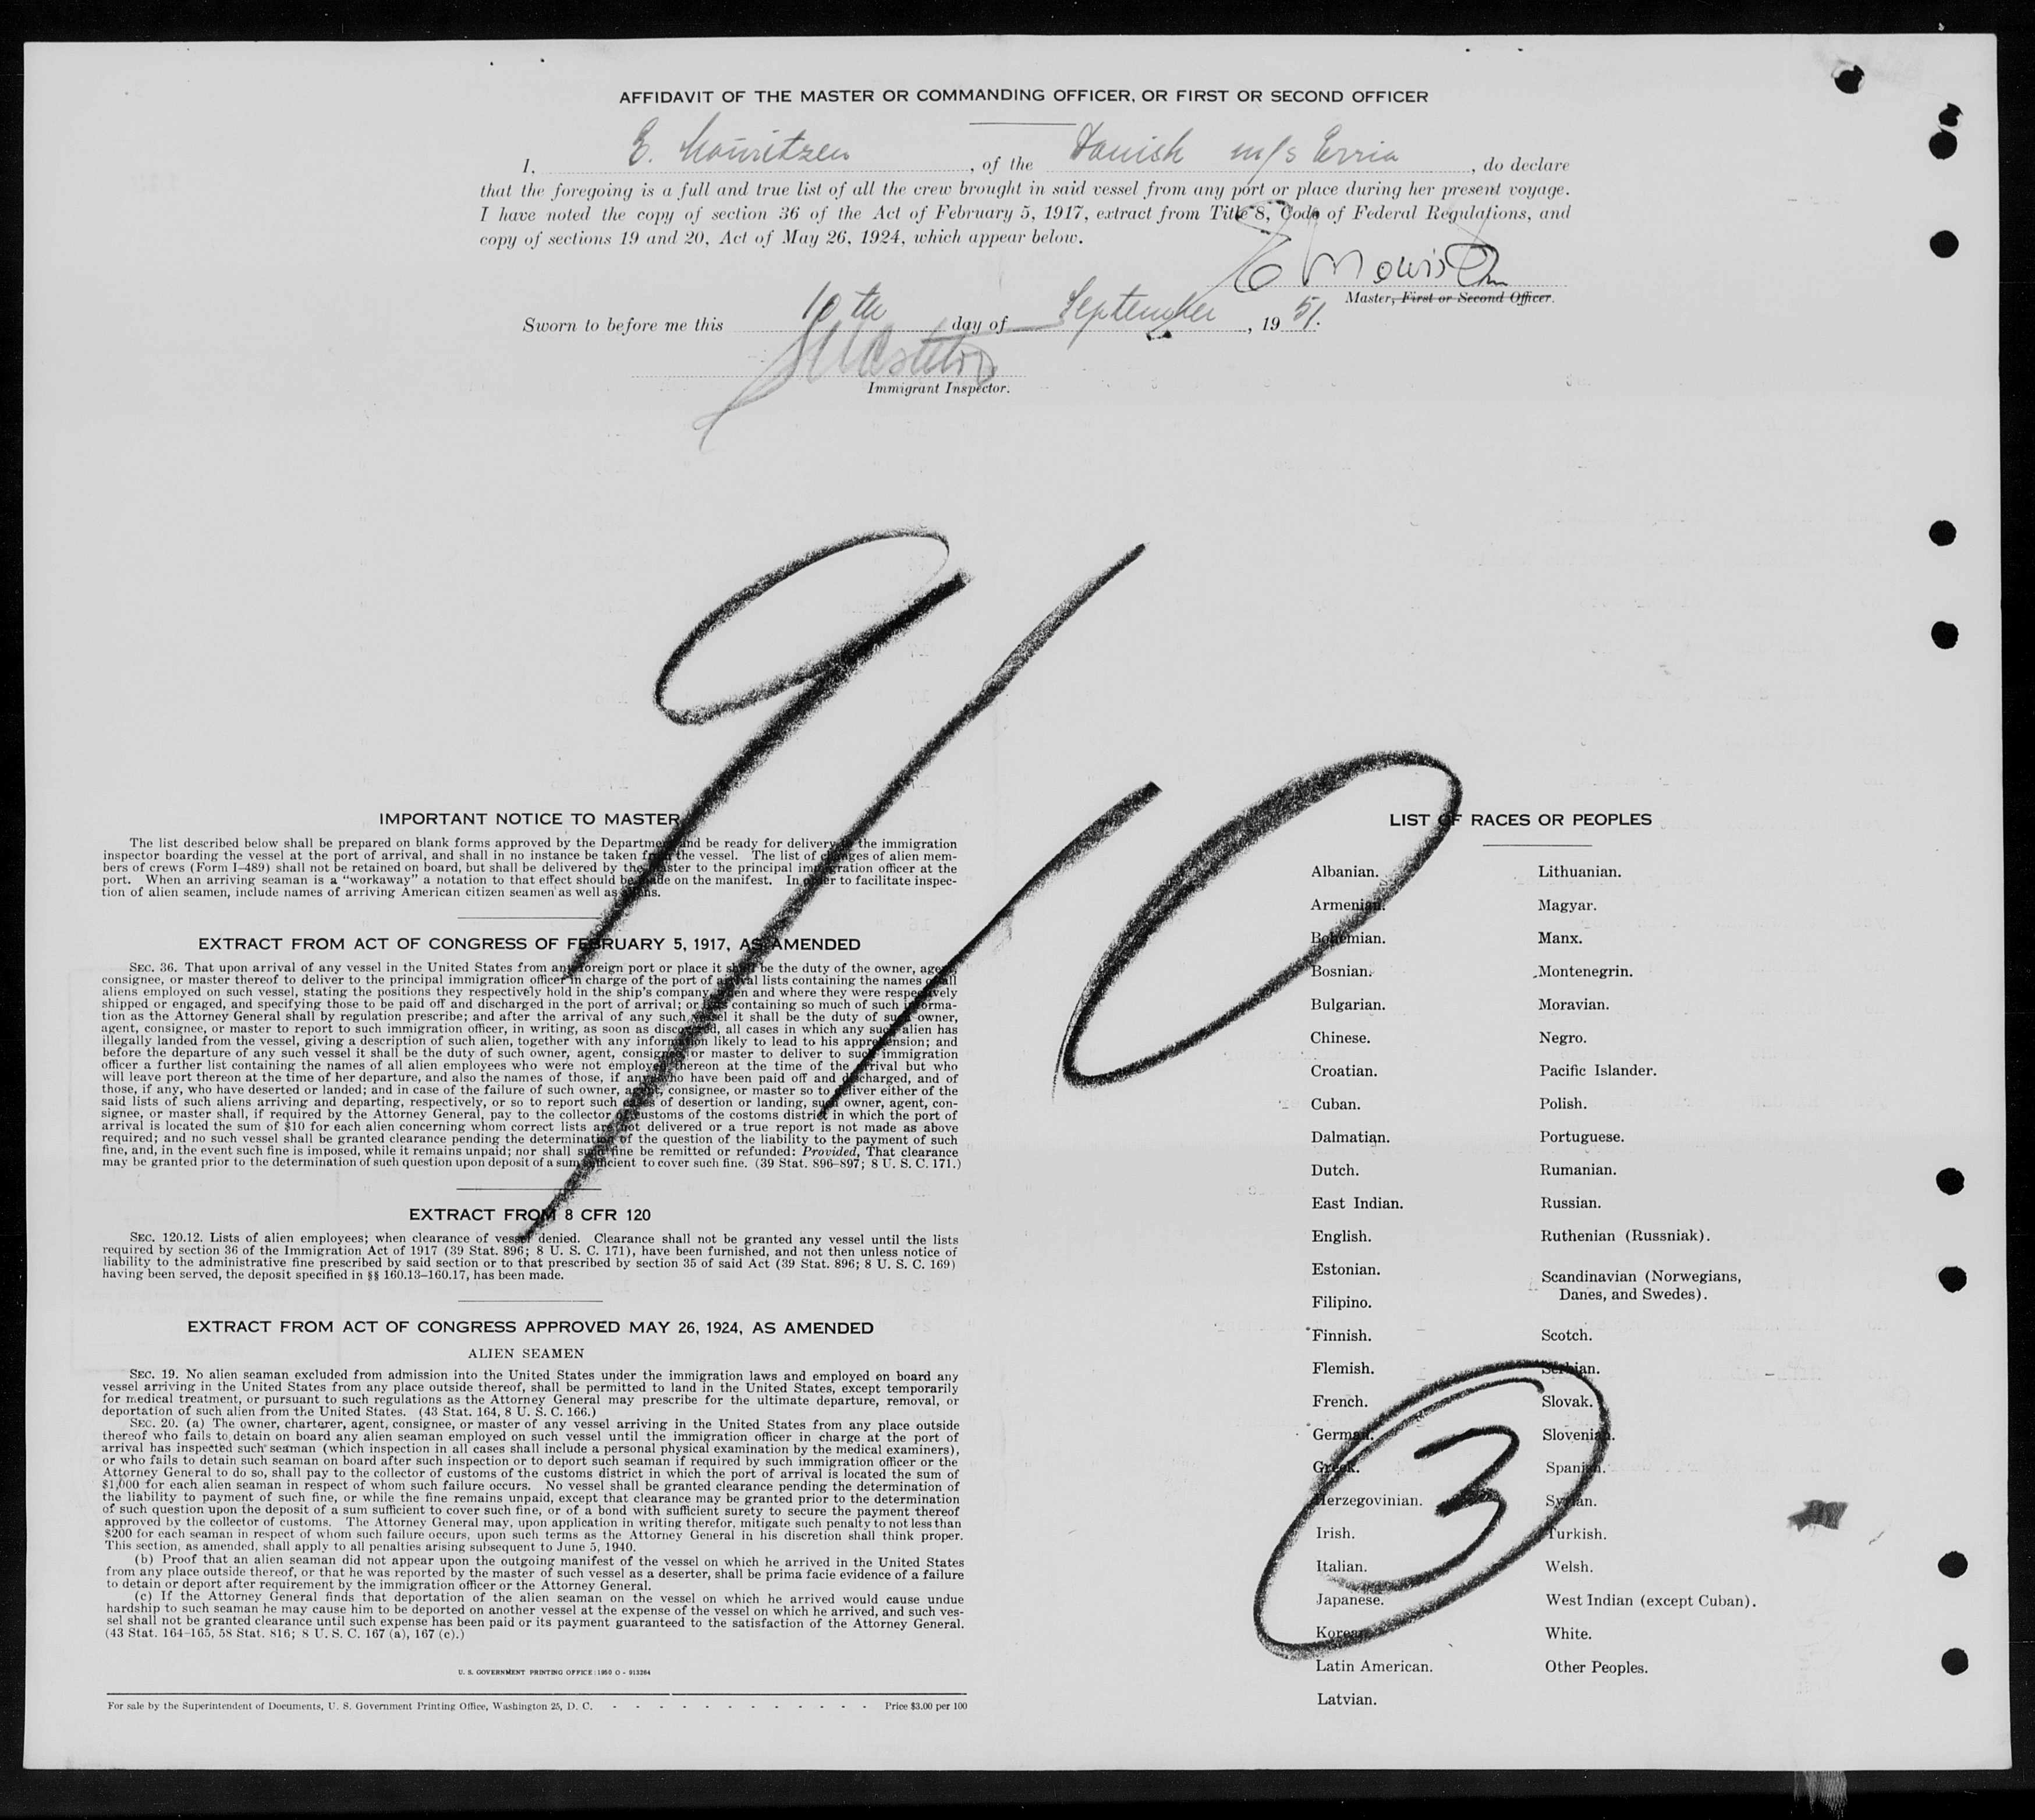 AFFIDAVIT OF THE MASTER OR COMMANDING OFFICER, OR FIRST OR SECOND OFFICER
I, E. Mouritzen, of the Danish m/s Erria, do declare
that the foregoing is a full and true list of all the crew brought in said vessel from any port or place during her present voyage.
I have noted the copy of section 36 of the Act of February 5, 1917, extract from Title 8, Code of Federal Regulations, and
copy of sections 19 and 20, Act of May 26, 1924, which appear below.
E Mouritzen
Master, First or Second Officer.
Sworn to before me this 10th day of September, 1951.
Immigrant Inspector.
9/10
IMPORTANT NOTICE TO MASTER
The list described below shall be prepared on blank forms approved by the Department and be ready for delivery to the immigration
inspector boarding the vessel at the port of arrival, and shall in no instance be taken from the vessel. The list of changes of alien mem-
bers of crews (Form I–489) shall not be retained on board, but shall be delivered by the master to the principal immigration officer at the
port. When an arriving seaman is a "workaway" a notation to that effect should be made on the manifest. In order to facilitate inspec-
tion of alien seamen, include names of arriving American citizen seamen as well as aliens.
EXTRACT FROM ACT OF CONGRESS OF FEBRUARY 5, 1917, AS AMENDED
SEC. 36. That upon arrival of any vessel in the United States from any foreign port or place it shall be the duty of the owner, agent,
consignee, or master thereof to deliver to the principal immigration officer in charge of the port of arrival lists containing the names of all
aliens employed on such vessel, stating the positions they respectively hold in the ship's company, when and where they were respectively
shipped or engaged, and specifying those to be paid off and discharged in the port of arrival; or lists containing so much of such informa-
tion as the Attorney General shall by regulation prescribe; and after the arrival of any such vessel it shall be the duty of such owner,
agent, consignee, or master to report to such immigration officer, in writing, as soon as discovered, all cases in which any such alien has
illegally landed from the vessel, giving a description of such alien, together with any information likely to lead to his apprehension; and
before the departure of any such vessel it shall be the duty of such owner, agent, consignee, or master to deliver to such immigration
officer a further list containing the names of all alien employees who were not employed thereon at the time of the arrival but who
will leave port thereon at the time of her departure, and also the names of those, if any, who have been paid off and discharged, and of
those, if any, who have deserted or landed; and in case of the failure of such owner, agent, consignee, or master so to deliver either of the
said lists of such aliens arriving and departing, respectively, or so to report such cases of desertion or landing, such owner, agent, con-
signee, or master shall, if required by the Attorney General, pay to the collector of customs of the costoms district in which the port of
arrival is located the sum of $10 for each alien concerning whom correct lists are not delivered or a true report is not made as above
required; and no such vessel shall be granted clearance pending the determination of the question of the liability to the payment of such
fine, and, in the event such fine is imposed, while it remains unpaid; nor shall such fine be remitted or refunded: Provided, That clearance
may be granted prior to the determination of such question upon deposit of a sum sufficient to cover such fine. (39 Stat. 896–897; 8 U. S. C. 171.)
EXTRACT FROM 8 CFR 120
SEC. 120.12. Lists of alien employees; when clearance of vessel denied. Clearance shall not be granted any vessel until the lists
required by section 36 of the Immigration Act of 1917 (39 Stat. 896; 8 U. S. C. 171), have been furnished, and not then unless notice of
liability to the administrative fine prescribed by said section or to that prescribed by section 35 of said Act (39 Stat. 896; 8 U. S. C. 169)
having been served, the deposit specified in §§ 160.13–160.17, has been made.
EXTRACT FROM ACT OF CONGRESS APPROVED MAY 26, 1924, AS AMENDED
ALIEN SEAMEN
SEC. 19. No alien seaman excluded from admission into the United States under the immigration laws and employed on board any
vessel arriving in the United States from any place outside thereof, shall be permitted to land in the United States, except temporarily
for medical treatment, or pursuant to such regulations as the Attorney General may prescribe for the ultimate departure, removal, or
deportation of such alien from the United States. (43 Stat. 164, 8 U. S. C. 166.)
SEC. 20. (a) The owner, charterer, agent, consignee, or master of any vessel arriving in the United States from any place outside
thereof who fails to detain on board any alien seaman employed on such vessel until the immigration officer in charge at the port of
arrival has inspected such seaman (which inspection in all cases shall include a personal physical examination by the medical examiners),
or who fails to detain such seaman on board after such inspection or to deport such seaman if required by such immigration officer or the
Attorney General to do so, shall pay to the collector of customs of the customs district in which the port of arrival is located the sum of
$1,000 for each alien seaman in respect of whom such failure occurs. No vessel shall be granted clearance pending the determination of
the liability to payment of such fine, or while the fine remains unpaid, except that clearance may be granted prior to the determination
of such question upon the deposit of a sum sufficient to cover such fine, or of a bond with sufficient surety to secure the payment thereof
approved by the collector of customs. The Attorney General may, upon application in writing therefor, mitigate such penalty to not less than
$200 for each seaman in respect of whom such failure occurs, upon such terms as the Attorney General in his discretion shall think proper.
This section, as amended, shall apply to all penalties arising subsequent to June 5, 1940.
(b) Proof that an alien seaman did not appear upon the outgoing manifest of the vessel on which he arrived in the United States
from any place outside thereof, or that he was reported by the master of such vessel as a deserter, shall be prima facie evidence of a failure
to detain or deport after requirement by the immigration officer or the Attorney General.
(c) If the Attorney General finds that deportation of the alien seaman on the vessel on which he arrived would cause undue
hardship to such seaman he may cause him to be deported on another vessel at the expense of the vessel on which he arrived, and such ves-
sel shall not be granted clearance until such expense has been paid or its payment guaranteed to the satisfaction of the Attorney General.
(43 Stat. 164–165, 58 Stat. 816; 8 U. S. C. 167 (a), 167 (c).)
U. S. GOVERNMENT PRINTING OFFICE : 1950 O - 913264
For sale by the Superintendent of Documents, U. S. Government Printing Office, Washington 25, D. C. - - - - - - - - - - - - Price $3.00 per 100
LIST OF RACES OR PEOPLES
Albanian.
Armenian.
Bohemian.
Bosnian.
Bulgarian.
Chinese.
Croatian.
Cuban.
Dalmatian.
Dutch.
East Indian.
English.
Estonian.
Filipino.
Finnish.
Flemish.
French.
German.
Greek.
Herzegovinian.
Irish.
Italian.
Japanese.
Korean.
Latin American.
Latvian.
Lithuanian.
Magyar.
Manx.
Montenegrin.
Moravian.
Negro.
Pacific Islander.
Polish.
Portuguese.
Rumanian.
Russian.
Ruthenian (Russniak).
Scandinavian (Norwegians,
Danes, and Swedes).
Scotch.
Serbian.
Slovak.
Slovenian.
Spanish.
Syrian.
Turkish.
Welsh.
West Indian (except Cuban).
White.
Other Peoples.
3